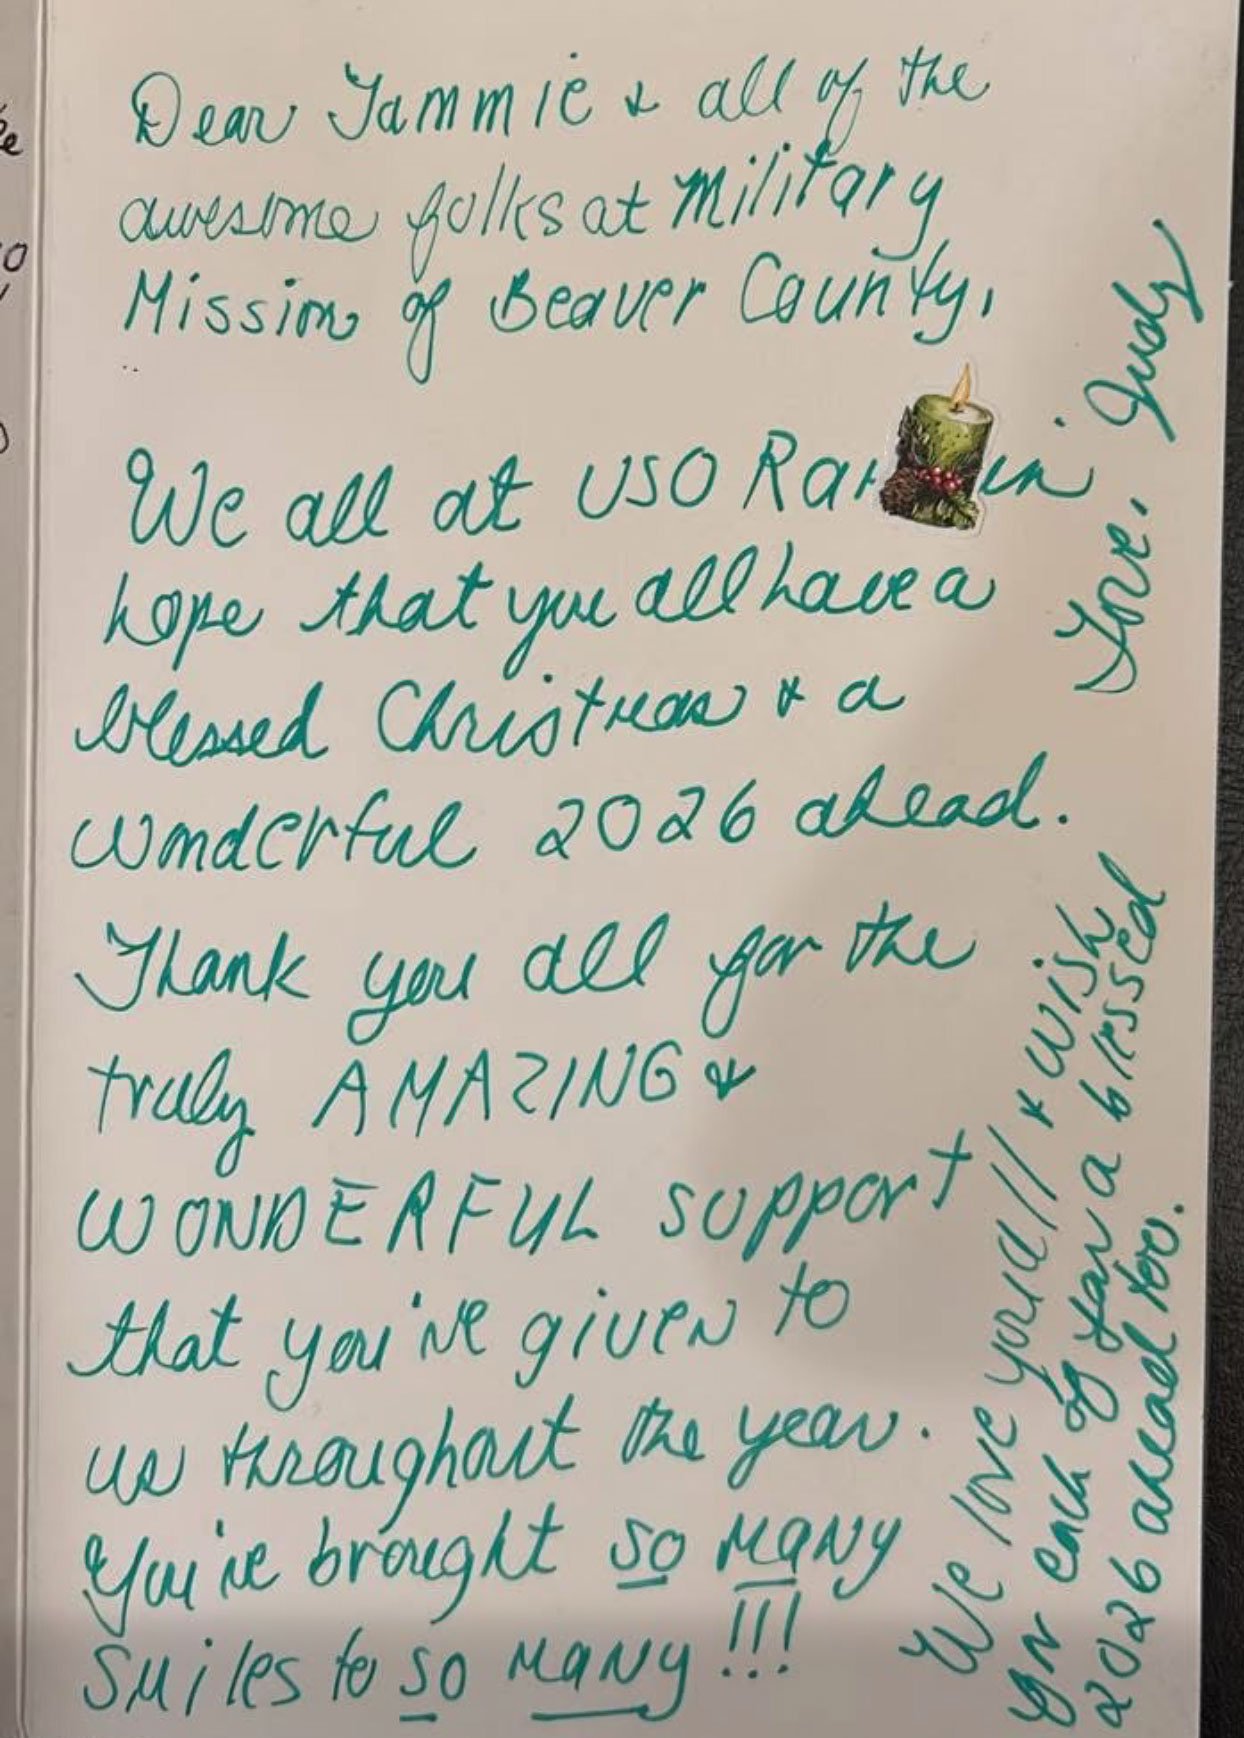 Dear Tammie & all of the
awesome folks at Military
Mission of Beaver County,
We all at USO Ra in
hope that you all have a
blessed Christmas & a
wonderful 2026 ahead.
Thank you all for the
truly AMAZING &
WONDERFUL support
that you've given to
us throughout the year.
You've brought so many
smiles to so many!!!
We love you all & wish
for each of you a blessed
2026 ahead too.
Love, Judy